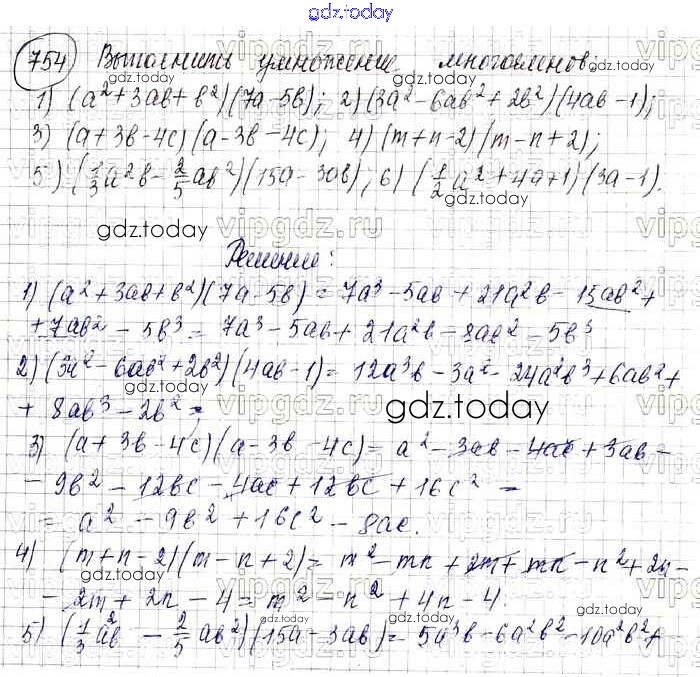 gdz.today
754 Выполнить умножение многочленов:
1) (a²+3ab+b²)(7a-5b); 2) (3a²-6ab²+2b²)(4ab-1);
3) (a+3b-4c)(a-3b-4c); 4) (m+n-2)(m-n+2);
5) (1/3a²b-2/5ab²)(15a-3ab); 6) (1/2a²+4a+1)(3a-1).
Решение:
1) (a²+3ab+b²)(7a-5b)=7a³-5ab+21a²b-15ab²+
+7ab²-5b³=7a³-5ab+21a²b-8ab²-5b³
2) (3a²-6ab²+2b²)(4ab-1)=12a³b-3a²-24a²b³+6ab²+
+8ab³-2b²;
gdz.today
3) (a+3b-4c)(a-3b-4c)=a²-3ab-4ac+3ab-
-9b²-12bc-4ac+12bc+16c²=
=a²-9b²+16c²-8ac.
4) (m+n-2)(m-n+2)=m²-mn+2m+mn-n²+2n-
-2m+2n-4=m²-n²+4n-4.
5) (1/3a²b-2/5ab²)(15a-3ab)=5a³b-6a²b²-10a²b²+